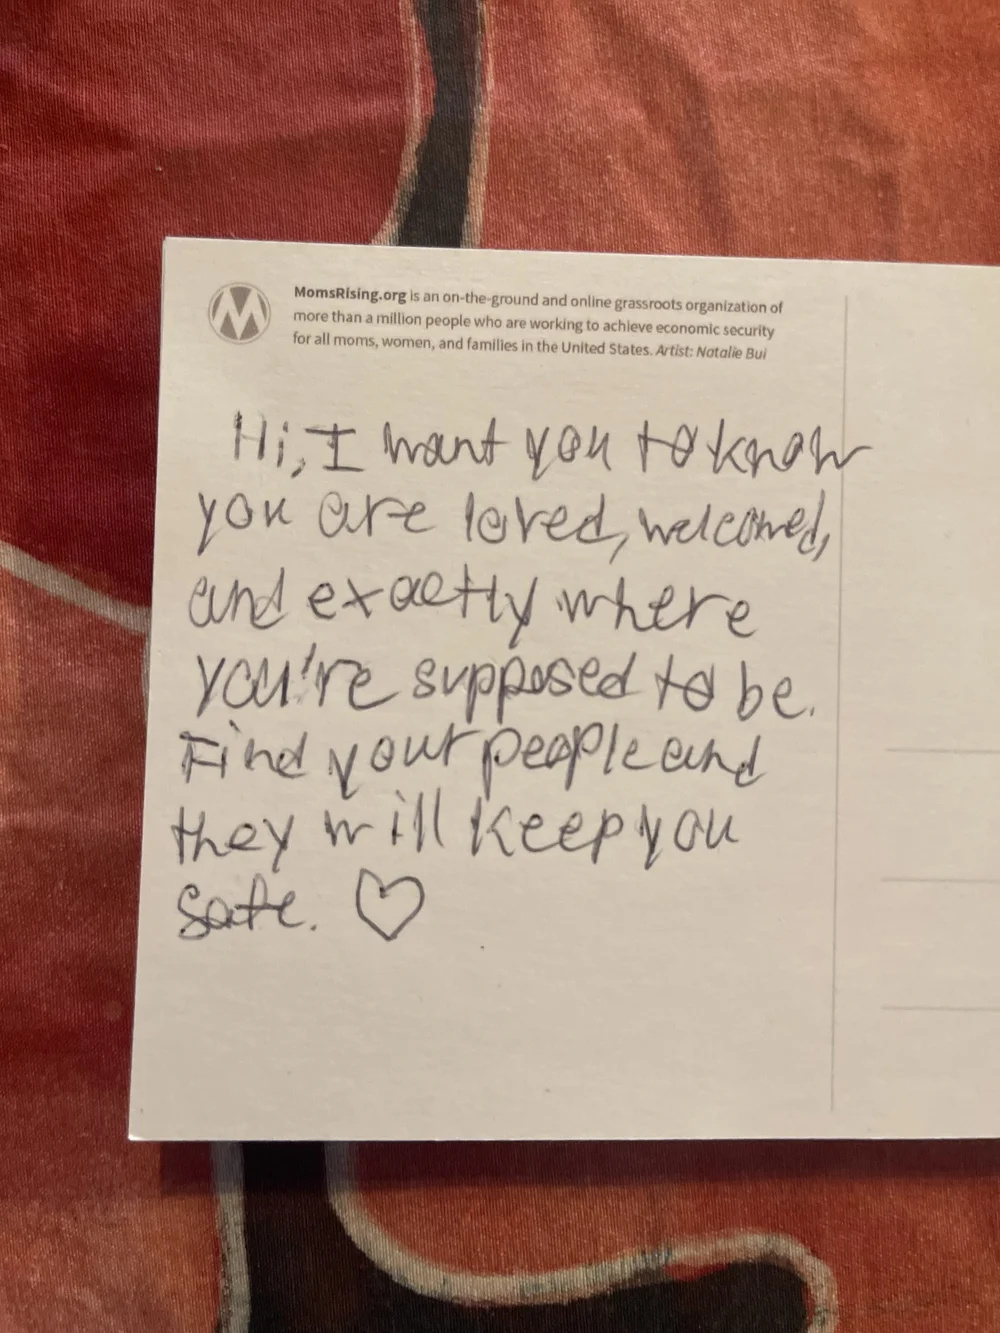 MomsRising.org is an on-the-ground and online grassroots organization of
more than a million people who are working to achieve economic security
for all moms, women, and families in the United States. Artist: Natalie Bui
Hi, I want you to know
you are loved, welcomed,
and exactly where
you're supposed to be.
Find your people and
they will keep you
safe. ♡